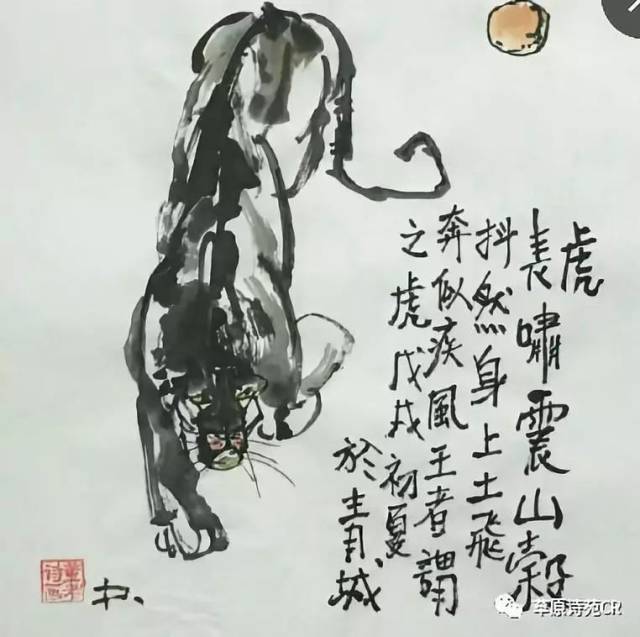 虎
長嘯震山穀
抖然身上土飛
奔似疾風王者謂
之虎戊戌初夏
於青城
草原诗苑CR